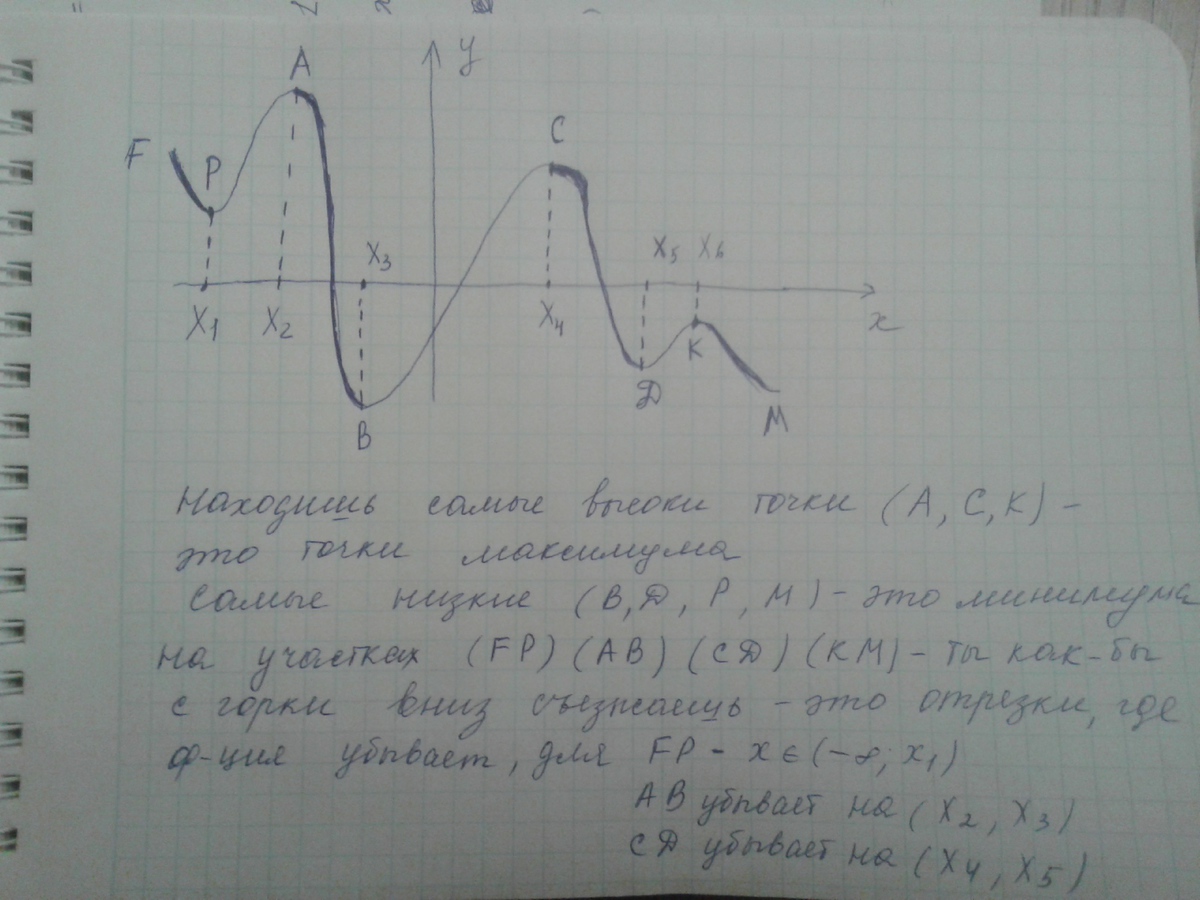 y
A
F
P
C
X3
X5 X6
X1
X2
X4
x
K
Д
M
B
Находишь самые высоки точки (A, C, K) -
это точки максимума
Самые низкие (B, Д, P, M) - это минимума
на участках (FP) (AB) (CД) (KM) - ты как-бы
с горки вниз съезжаешь - это отрезки, где
ф-ция убывает, для FP - x ∈ (-∞; x1)
AB убывает на (X2, X3)
CД убывает на (X4, X5)